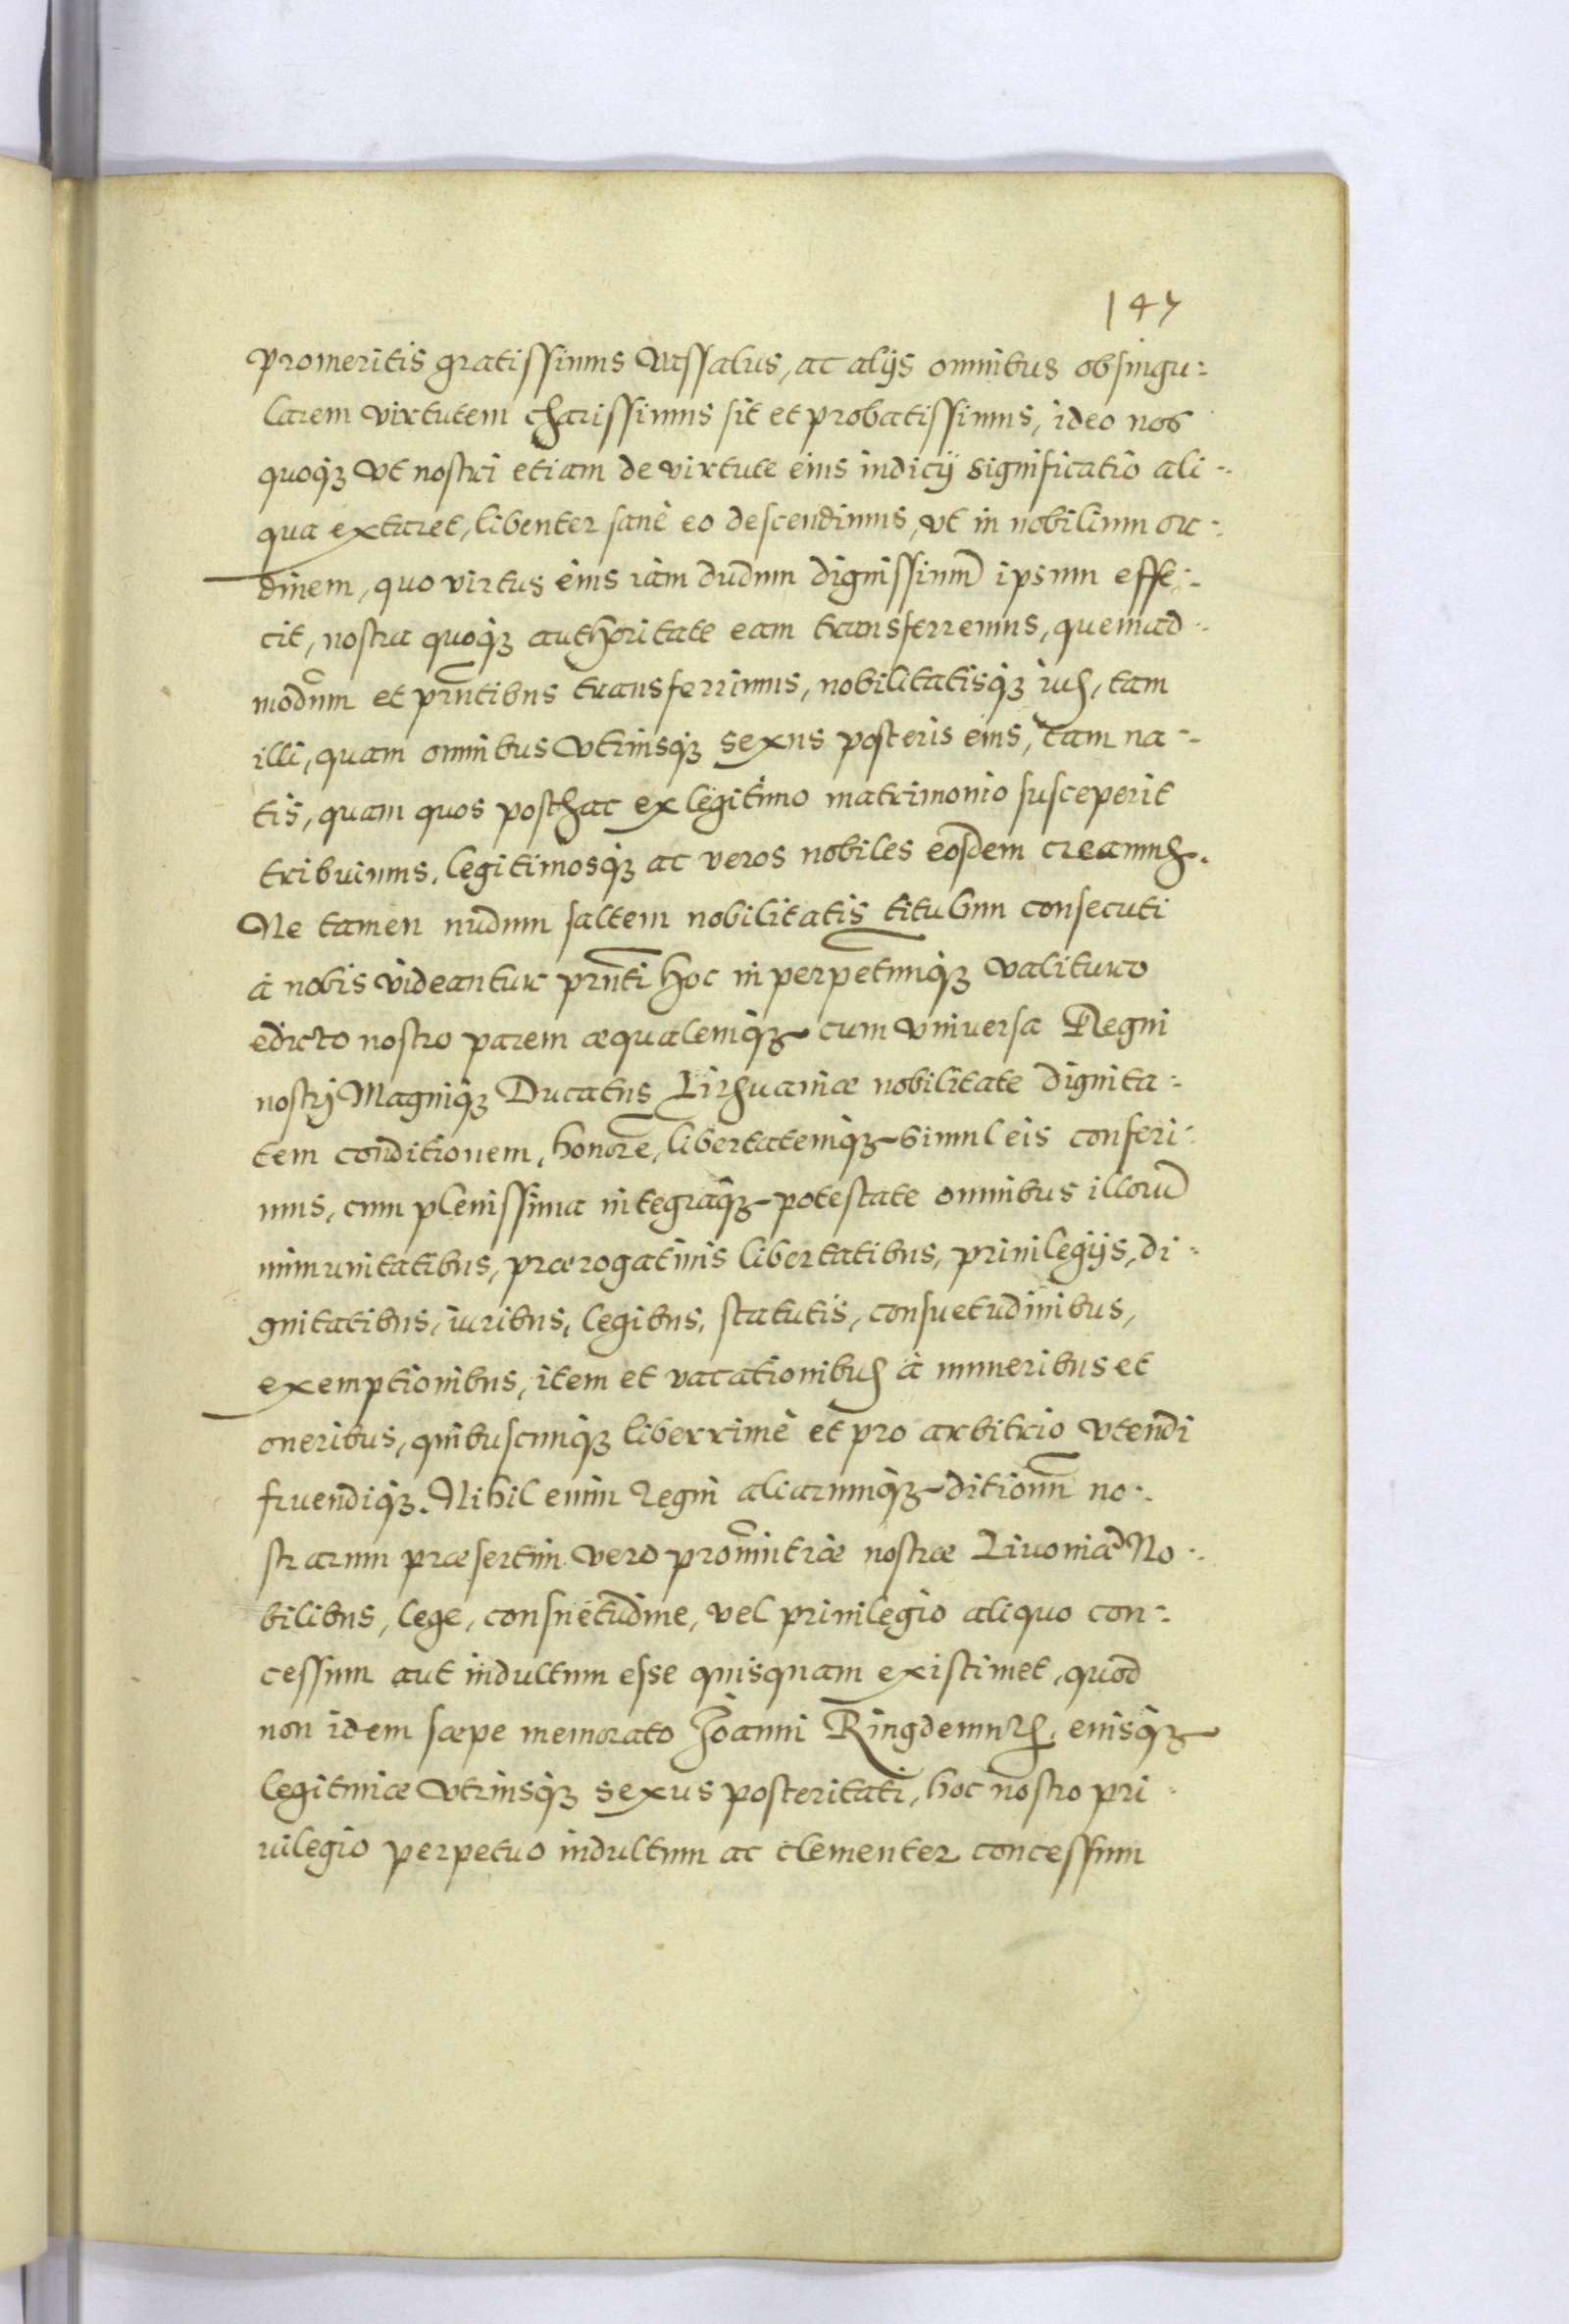 147
promeritis gratissimus Vassalus, ac alijs omnibus ob singu:
larem virtutem charissimus sit et probatissimus, ideo nos
quoq́ꝫ vt nostri etiam de virtute eius iudicij significatio ali-
qua extaret, libenter sanè eo descendimus, vt in nobilium or:
dinem, quo virtus eius iam dudum dignissimũ ipsum effe:
cit, nostra quoq́ꝫ authoritate eam transferremus, quemad-
modum et prñtibus transferrimus, nobilitatisq́ꝫ ius, tam
illi, quam omnibus vtriusq́ꝫ sexus posteris eius, tam na-
tis, quam quos posthac ex legitimo matrimonio susceperit
tribuimus, legitimosq́ꝫ ac veros nobiles eosdem creamus.
Ne tamen nudum saltem nobilitatis titulum consecuti
à nobis videantur prñti hoc in perpetuumq́ꝫ valituro
edicto nostro parem æqualemq́ꝫ cum vniuersa Regni
nostrj Magniq́ꝫ Ducatus Lithuaniæ nobilitate dignita:
tem conditionem, honorẽ, libertatemq́ꝫ simul eis conferi:
mus, cum plenissima integraq́ꝫ potestate omnibus illorũ
immunitatibus, prærogatiuis libertatibus, priuilegijs, di:
gnitatibus, iuribus, legibus, statutis, consuetudinibus,
exemptionibus, item et vacationibus à muneribus et
oneribus, quibuscunq́ꝫ liberrimè et pro arbitrio vtendi
fruendiq́ꝫ. Nihil enim Regni aliarumq́ꝫ ditionũ no:
strarum præsertim vero prouintiæ nostræ Liuoniæ No:
bilibus, lege, consuetudine, vel priuilegio aliquo con:
cessum aut indultum esse quisquam existimet, quod
non idem sæpe memorato Joanni Ringdemuth, eiusq́ꝫ
legitimæ vtriusq́ꝫ sexus posteritati, hoc nostro pri:
uilegio perpetuo indultum ac clementer concessum